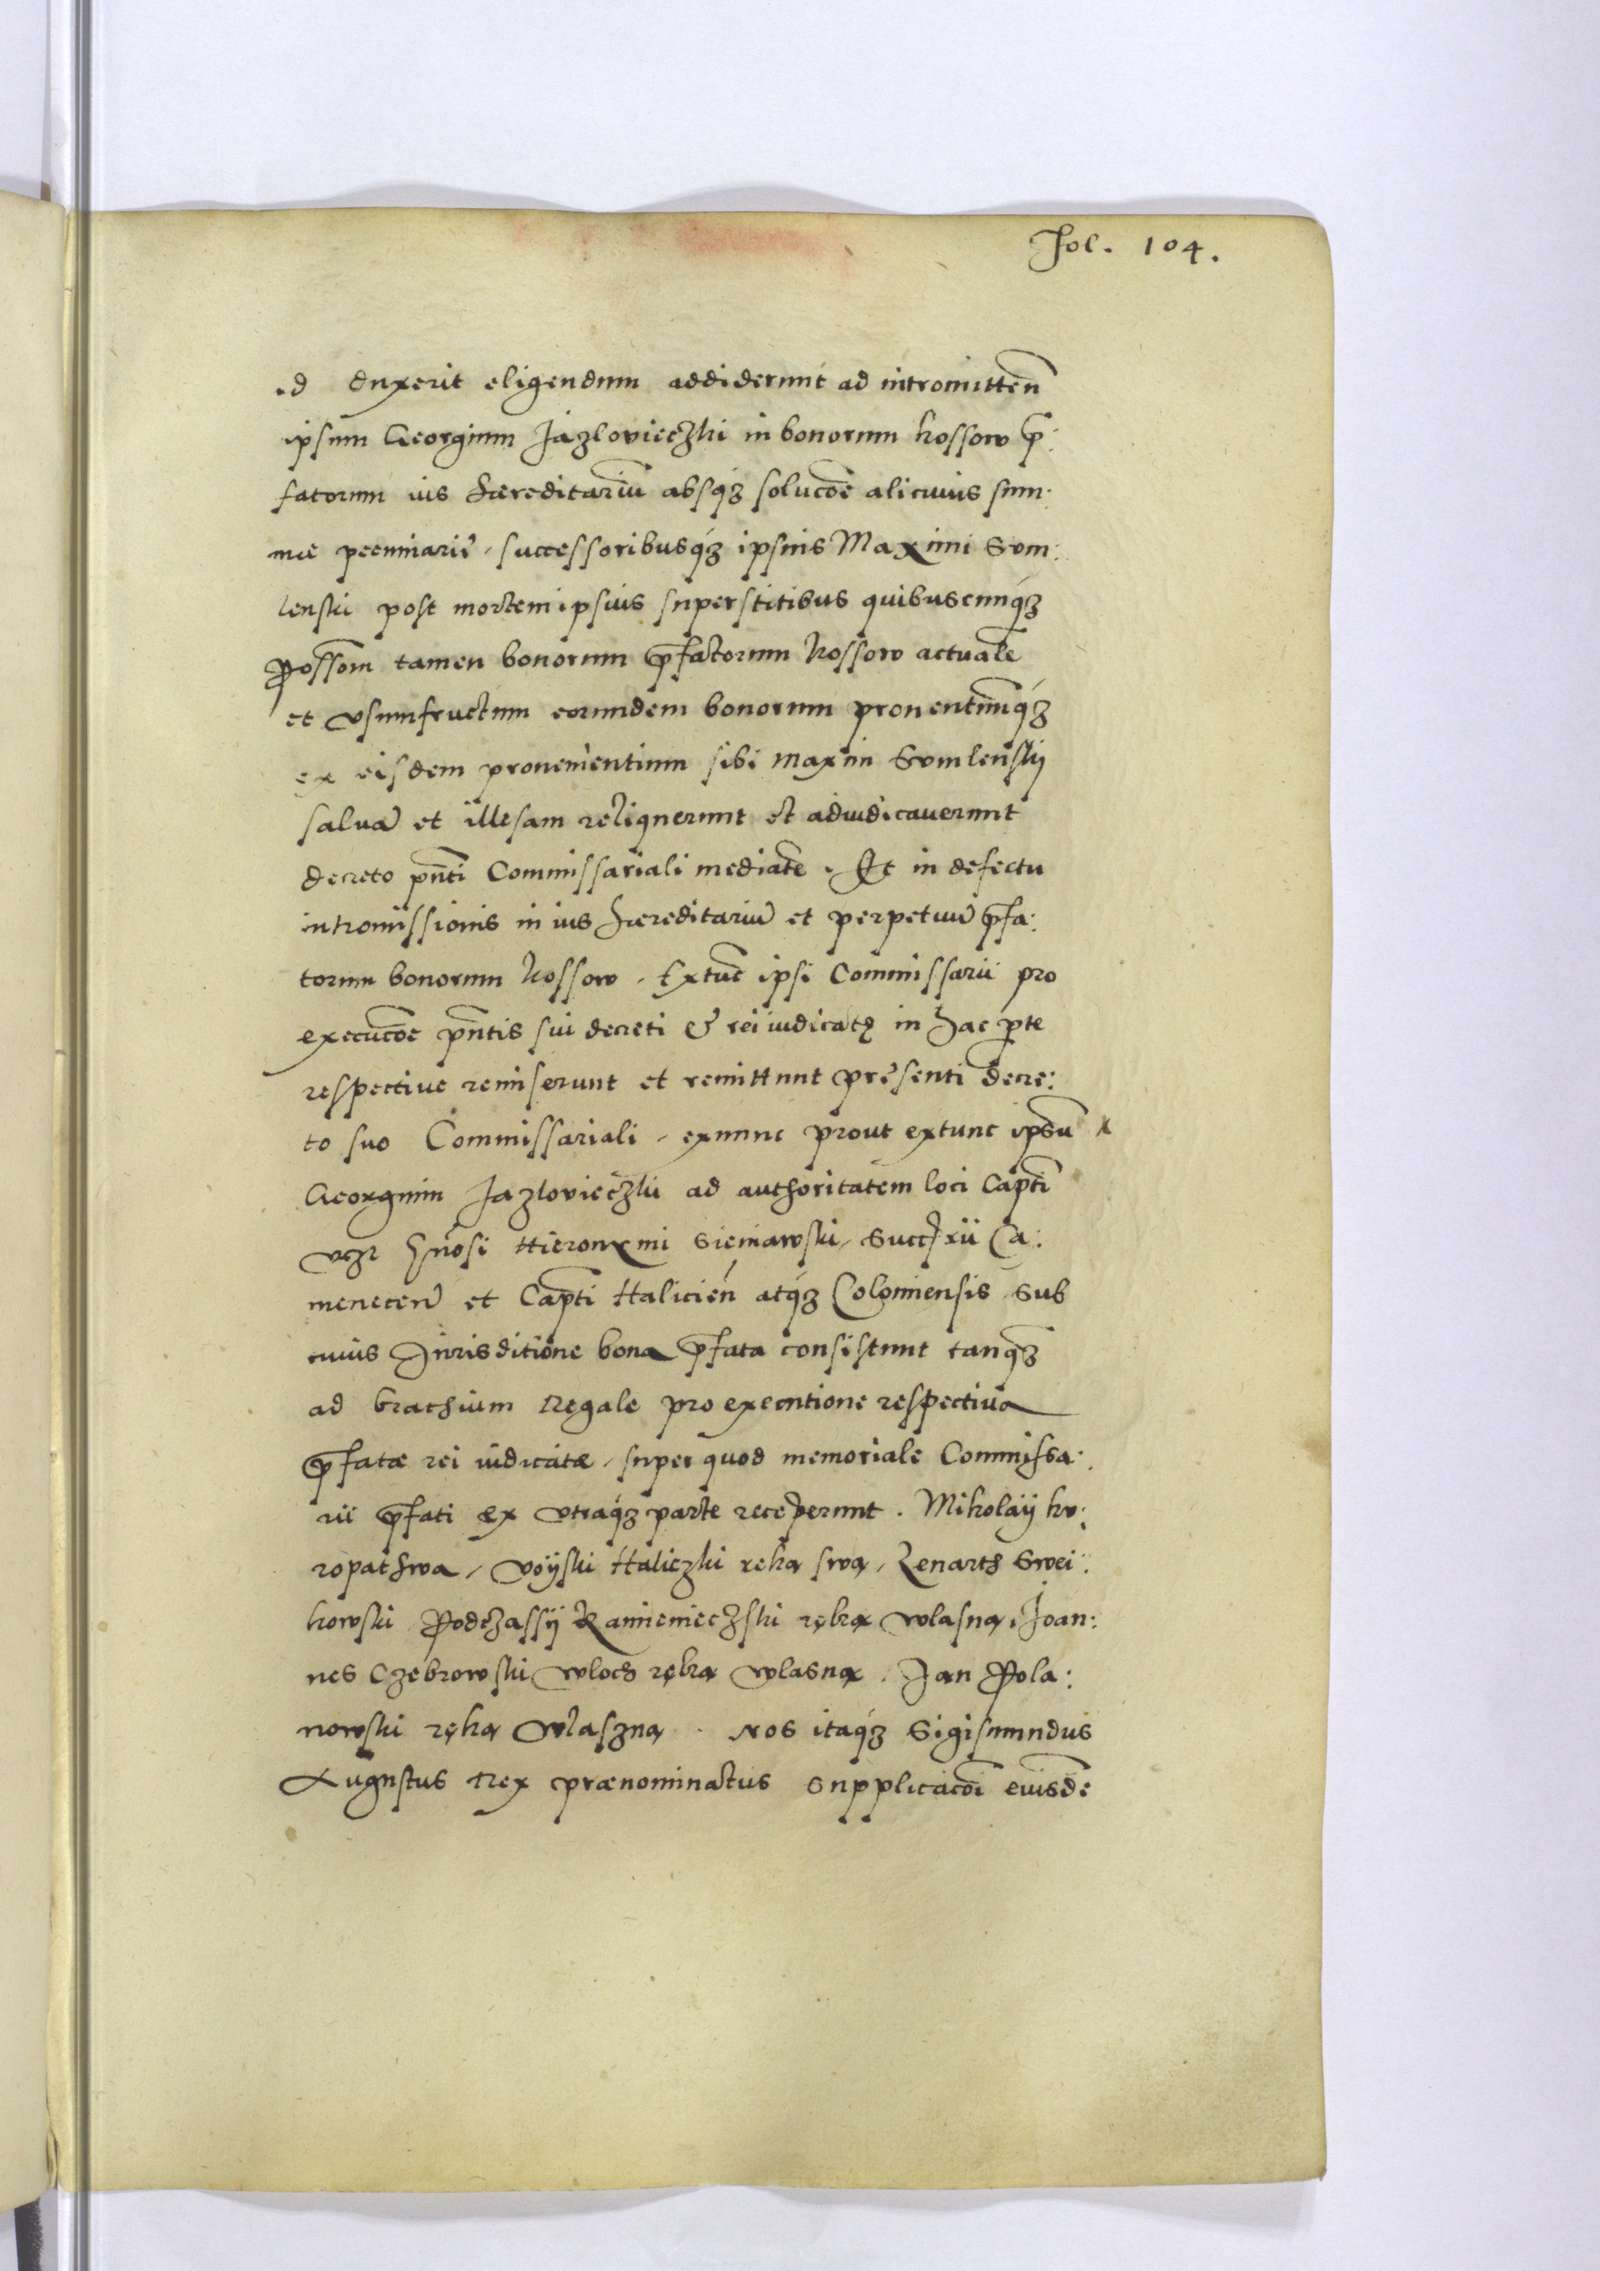 Fol. 104.
id duxerit eligendum addiderunt ad intromitten̄
ipsum Georgium Jazlovieczki in bonorum Kossow p̄:
fatorum ius hæreditariū absq3 solucōe alicuius sum:
mæ pecuniariæ, successoribusq3 ipsius Maximi Somlenski
post mortem ipsius superstitibus quibuscunq3
Possom̄ tamen bonorum p̄fatorum Kossow actualē
et vsumfructum eorundem bonorum prouentuūq3
ex eisdem prouenientium sibi Maxim Somlenskij
saluā et illesam reliquerunt et adiudicauerunt
decreto pn̄ti Commissariali mediatē. Et in defectu
intromissionis in ius hæreditariū et perpetuū p̄fa:
torum bonorum Kossow, Extūc ipsi Commissarii pro
execucōe pn̄tis sui decreti & rei iudicatę in hac p̄te
respectiue remiserunt et remittunt præsenti decre:
to suo Commissariali, exnunc prout extunc ipsū
Georgium Jazlovieczki ad authoritatem loci Capt̄i
vz̄r Gn̄osi Hieronymi Sieniawski, Succ̄rii Ca:
menecen̄ et Capt̄i Halicien̄ atq3 Colomiensis sub
cuius Jurisditione bona p̄fata consistunt tanq3
ad brachium Regale pro executione respectiua
p̄fatæ rei iudicatæ, super quod memoriale Commissa:
rii p̄fati ex vtraq3 parte receperunt. Mikolaÿ ko:
ropathwa, Voÿski Haliczki ręką swą, Lenarth Swei:
kowski Podczassÿ Kamienieczski ręką wlasną, Joan:
nes Czebrowski wloch ręką wlasną. Jan Pola:
nowski ręką wlaszną. Nos itaq3 Sigismundus
Augustus Rex prænominatus supplicacōi eiusdē